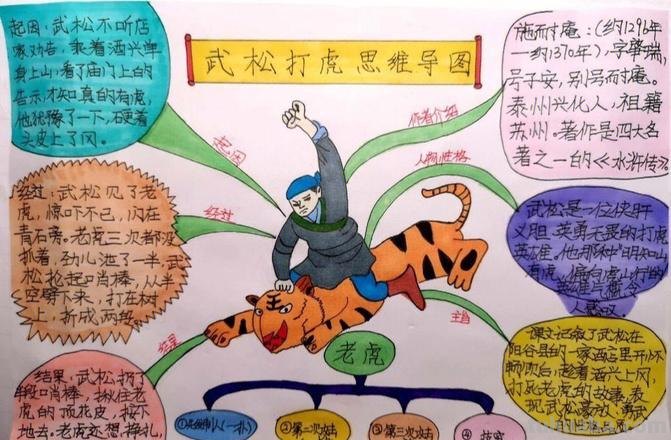 武松打虎思维导图
起因：武松不听店
家劝告，乘着酒兴单
身上山，看了庙门上的
告示才知真的有虎，
他犹豫了一下，硬着
头皮上了冈。
起因
经过：武松见了老
虎，惊吓不已，闪在
青石旁。老虎三次都没
抓着，劲儿泄了一半，武
松抡起哨棒，从半
空劈下来，打在树
上，折成两段。
经过
结果：武松扔了
半段哨棒，揪住老
虎的顶花皮，按下
地去。老虎还想挣扎，
结果
作者介绍
施耐庵：（约1296年
一约1370年），字肇瑞，
号子安，别号耐庵。
泰州兴化人，祖籍
苏州。著作是四大名
著之一的《水浒传》
人物性格
武松是一位侠肝
义胆、英勇无畏的打虎
英雄。他那种"明知山
有虎，偏向虎山行"的
英雄气概令
人感叹。
主旨
课文记叙了武松在
阳谷县的一家酒店里开怀
畅饮后，趁着酒兴上冈，
打死老虎的故事，表
现武松豪放、勇武
老虎
②第二次攻击
③第三次攻击